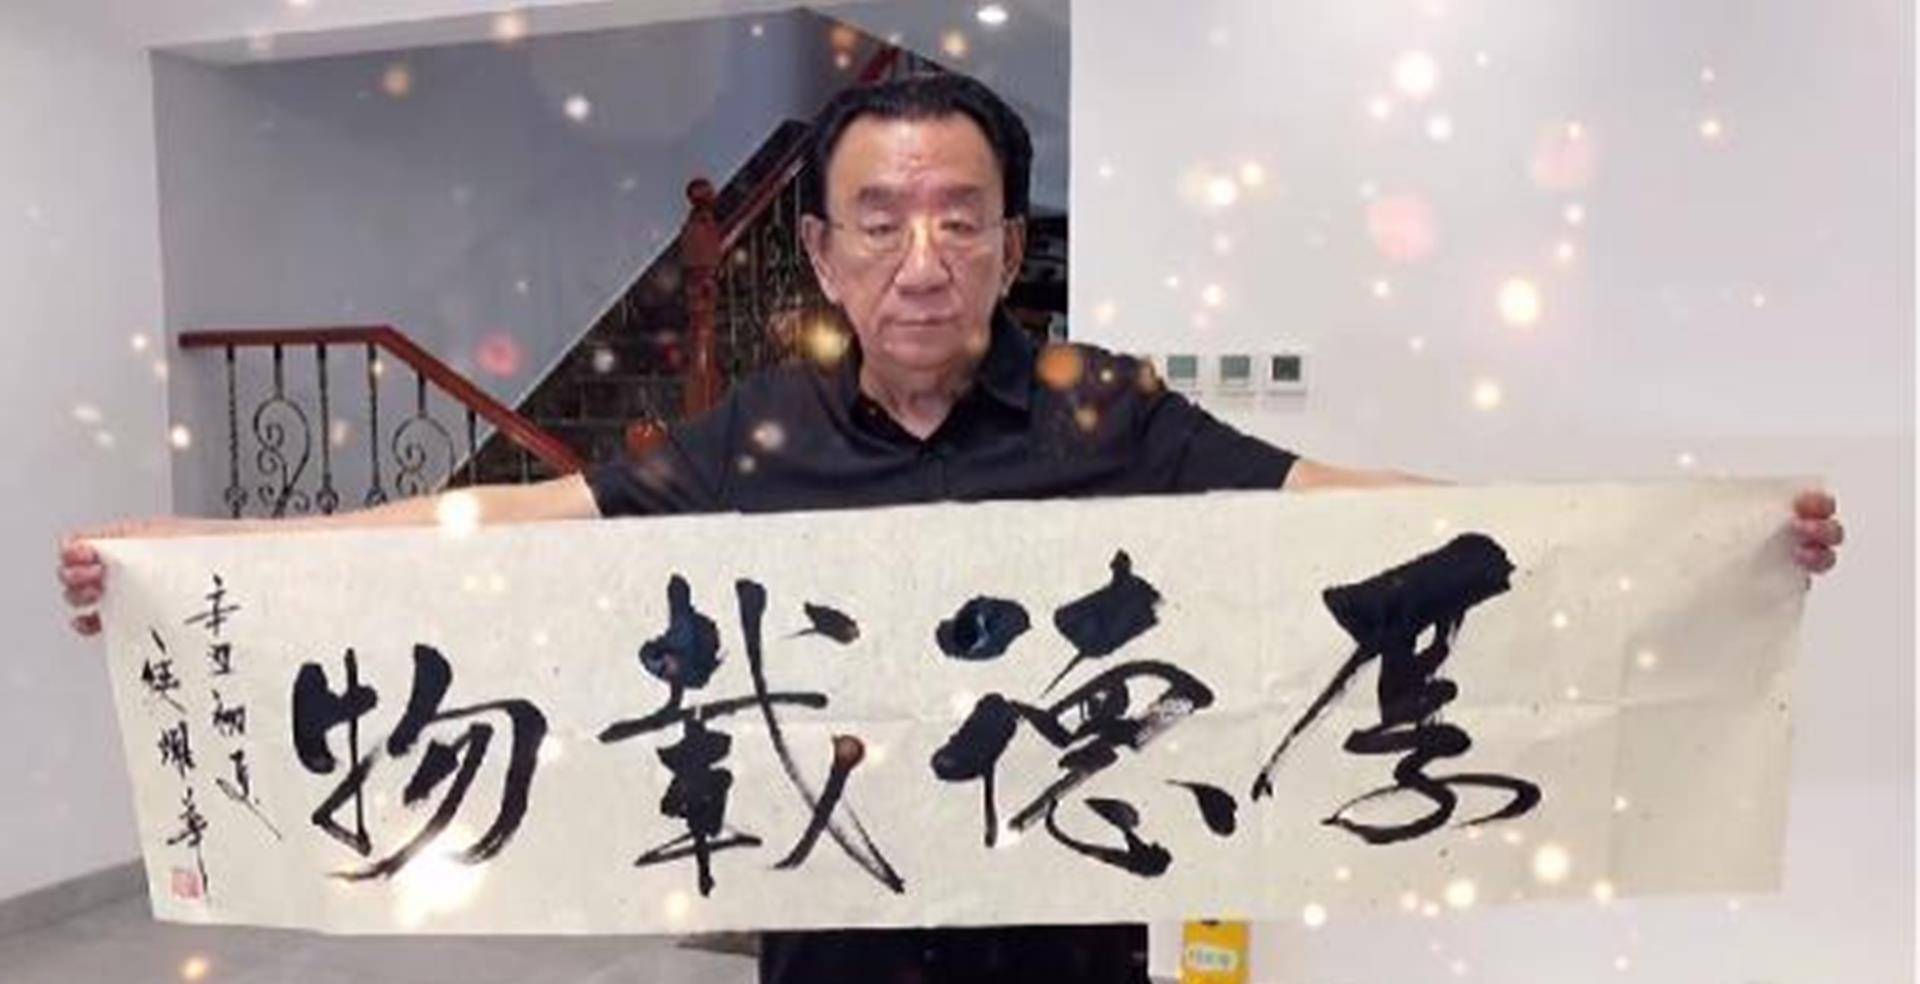 厚德載物
辛丑初夏
侯耀華